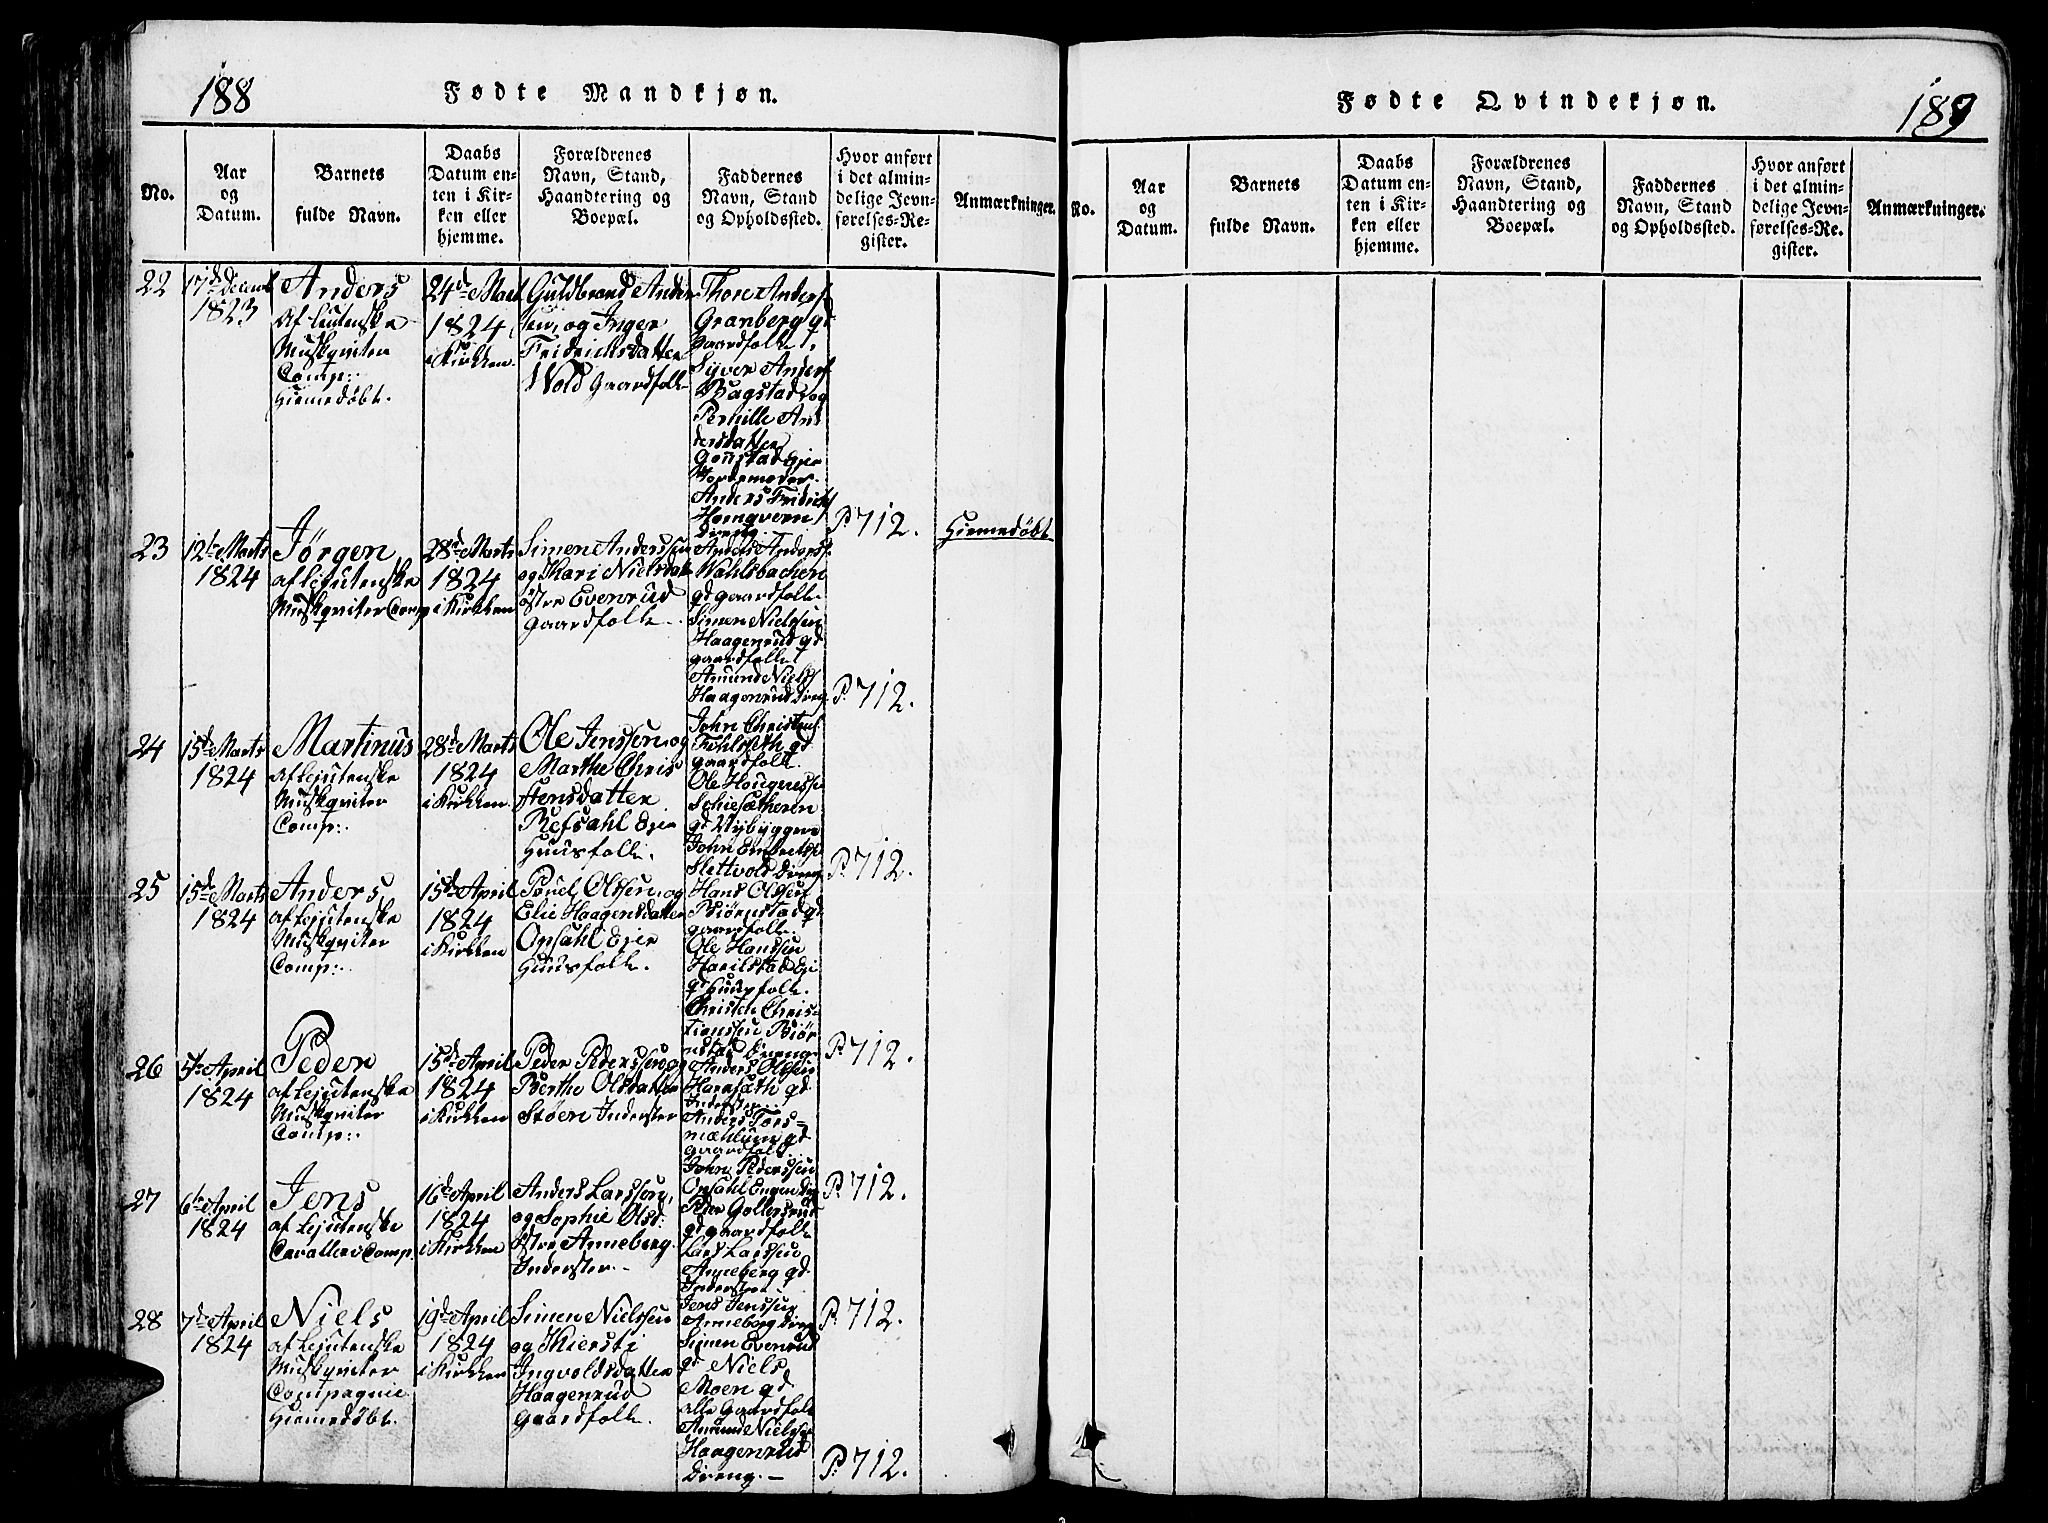 188
Fødte Mandkjøn.
No.
Aar
og
Datum.
Barnets
fulde Navn.
Daabs
Datum en-
ten i Kir-
ken eller
hjemme.
Forældrenes
Navn, Stand,
Haandtering og
Boepæl.
Faddernes
Navn, Stand
og Opholdssted.
Hvor anført
i det almin-
delige Jevn-
førelses-Re-
gister.
Anmærkninger.
22
17de Decemb
1823
Anders
Af Leutenske
Muskqviter
Comp:
Hiemedøbt.
24de Mart
1824
i Kirken.
Guldbrand Ander
sen, og Inger
Fridrichsdatter
Wold Gaardfolk
Thore Anders
Granberg gd
gaardfolk.
Syver Anders
Bagstad og
Pernille An
dersdatter
Gonstad Eier
Jordemoder.
Anders Fridrich
drenge
P. 712.
Hiemedøbt
23
12te Marts
1824
Jørgen
af Lejutenske
Muskqviter Comp
28de Marts
1824
i Kirken
Simen Anderssen
og Kari Nielsdatt
østre Evenrud
Gaardfolk.
Anders Anderss
Wahlsbachen
gd gaardfolk.
Simen Nielssen
Haagenrud gd
gaardfolk
Amund Nielss
Haagenrud Dreng
P. 712.
24
15de Marts
1824
Martinus
af Lejutenske
Muskqviter
Comp:
28de Marts
1824
i Kirken
Ole Jenssen og
Marthe Chris
stensdatter
Refsahl Eier
Huusfolk.
John Christens
gd
gaardfolk.
Ole Haugerssen
gd Nybyggere
John Embretss
Slettvold Dreng
P. 712.
25
15de Marts
1824
Anders
af Lejutenske
Muskqviter
Comp:
15de April
1824
i Kirken
Pouel Olssen og
Elie Haagensdatter
Opsahl Eier
Huusfolk.
Hans Olssen
Biørnstad gd
gaardfolk.
Ole Hanssen
Eje
gd huusfolk.
Christen Chris-
tianssen Biør
nstad Dreng
P. 712.
26
5te April
1824
Peder
af Lejutenske
Muskqviter
Comp:
15de April
1824
i Kirken
Peder Pederssen og
Berthe Olsdatter
Støen Inderster
Anders Olssen
Harasæth gd
Inderster.
Anders Tors-
mæhlum gd
gaardfolk
John Pederssen
Opsahl Engen Dreng
P. 712.
27
6te April
1824
Jens
af Lejutenske
Cavallerie Comp.
16de April
1824
i Kirken
Anders Larssen,
og Sophie Olsd:
østre Anneberg.
Inderster.
Peder Gollersrud
gd gaardfolk
Lars Larssen
Anneberg gd
Inderster
Jens Jenssen
Anneberg Dreng
P. 712.
28
7de April
1824
Niels
af Lejutenske
Muskqviter
Compagnie
Hiemedøbt.
19de April
1824
i Kirken
Simen Nielssen
og Kiersti
Ingvoldsdatter
Haagenrud
Gaardfolk.
Simen Evenrud
gd Niels
Moen gd
alle Gaardfolk
Amund Nielss
Haagenrud
Dreng.
P. 712.
189
Fødte Qvindekjøn.
No.
Aar
og
Datum.
Barnets
fulde Navn.
Daabs
Datum en-
ten i Kir-
ken eller
hjemme.
Forældrenes
Navn, Stand,
Haandtering og
Boepæl.
Faddernes
Navn, Stand
og Opholdssted.
Hvor anført
i det almin-
delige Jevn-
førelses-Re-
gister.
Anmærkninger.